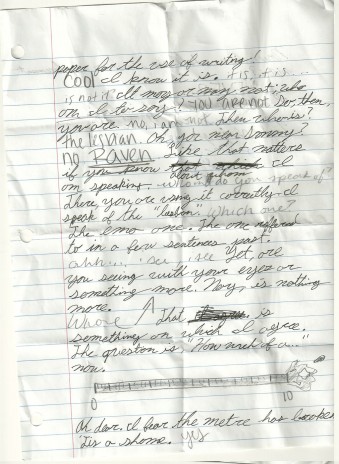 paper for the use of writing!
Cool I know it is. it is, it is...
is not it? I'll may or may not; who
am I to say? you are not So, then,
you are. no, i am not Then who is?
the lesbian. Oh, you mean Dommy?
no Raven Like that matters
if you know about whom I
am speaking. who do you speak of?
There, you are using it correctly. I
speak of the "lesbian" which one?
The emo one. The one referred
to in a few sentences past.
ahh... i see, i see Yet, are
you seeing with your eyes or
something more. Nay, is nothing
more.
That is
something on which I agree.
The question is, "How much of a..."
now.
0 10
Oh dear. I fear the metre has broken
'Tis a shame. yes